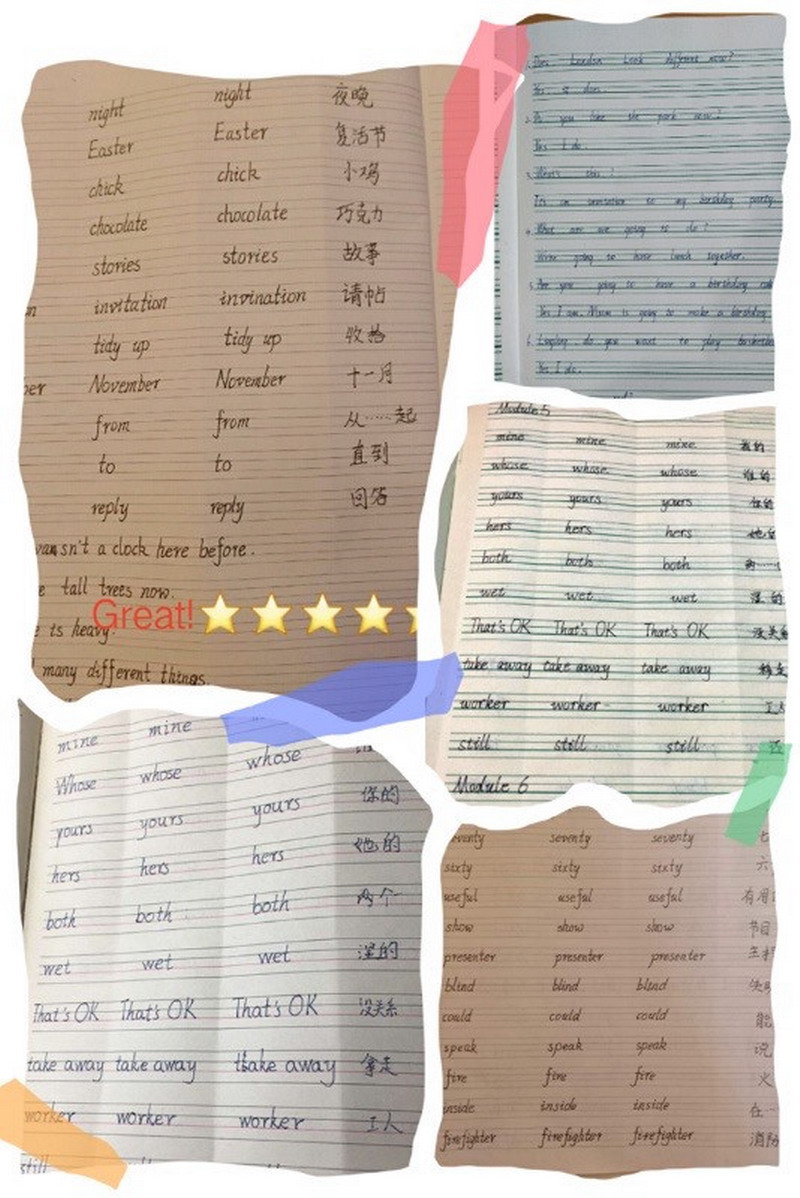 night night 夜晚
Easter Easter 复活节
chick chick 小鸡
chocolate chocolate 巧克力
stories stories 故事
invitation invination 请帖
tidy up tidy up 收拾
ber November November 十一月
from from 从……起
to to 直到
reply reply 回答
sn't a clock here before.
e tall trees now.
Great!
e is heavy.
many different things.
1. Does London look different now?
Yes, it does.
2. Do you like the park now?
Yes I do.
3. What's this?
It's an invitation to my birthday party.
4. What are we going to do?
We're going to have lunch together.
5. Are you going to have a birthday
Yes I am. Mum is going to make a birthday
6. Lingling do you want to play basketba
Yes I do.
Module 5
mine mine mine 我的
whose whose whose 谁的
yours yours yours 你的
hers hers hers 她的
both both both 两
wet wet wet 湿的
That's OK That's OK That's OK 没关
take away take away take away 移走
worker worker worker 工人
still still still 还
Module 6
mine mine
Whose whose whose
yours yours yours 你的
hers hers hers 她的
both both both 两个
wet wet wet 湿的
That's OK That's OK That's OK 没关系
take away take away take away 拿走
worker worker worker 工人
still
eventy seventy seventy 七
sixty sixty sixty 六
useful useful useful 有用
show show show 节目
presenter presenter presenter 主持
blind blind blind 失明
could could could 能
speak speak speak 说
fire fire fire 火
inside inside inside 在
firefighter firefighter firefighter 消防